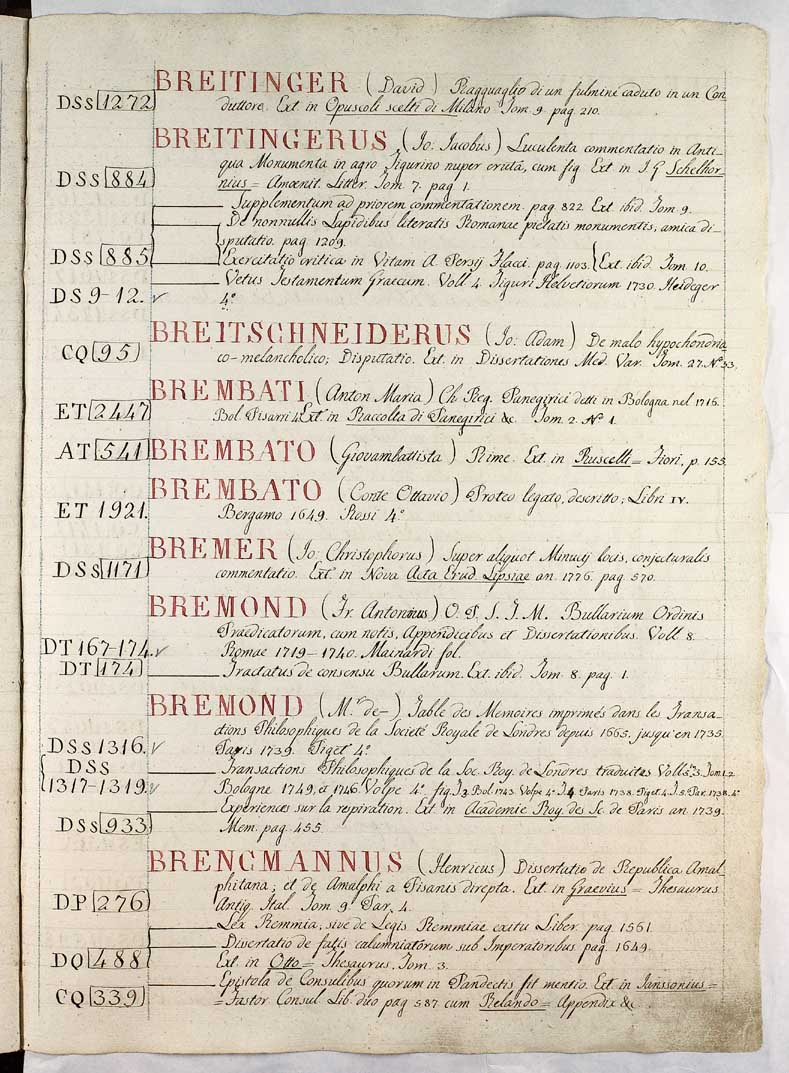 BREITINGER (David) Ragguaglio di un fulmine caduto in un Con
DSS 1272 duttore. Ext in Opuscoli scelti di Milano Tom. 9. pag. 210.
BREITINGERUS (Io. Jacobus) Luculenta commentatio in Anti-
qua Monumenta in agro Tigurino nuper eruta, cum fig. Ext in J. G Schelhor-
DSS 884 nius = Amoenit. Litter. Tom 7. pag 1.
Supplementum ad priorem commentationem. pag. 822. Ext. ibid. Tom. 9.
De nonnullis Lapidibus literatis Romanae pietatis monumentis, amica di-
sputatio. pag 1209.
DSS 885 Exercitatio critica in Vitam A. Persij Flacci. pag. 1103. Ext. ibid. Tom. 10.
Vetus Testamentum Graecum. Voll 4. Tiguri Helvetiorum 1730. Heideger
DS 9-12. v 4º
BREITSCHNEIDERUS (Io: Adam) De malo hypochondria
CQ 95 co-melancholico; Disputtatio. Ext. in Dissertationes Med. Var. Tom. 27. Nº 33.
BREMBATI (Anton Maria) Ch Reg. Panegirici detti in Bologna nel 1716.
ET 2447 Bol Pisarri 4º Ext. in Raccolta di Panegirici &c. Tom. 2. Nº 1.
AT 541 BREMBATO (Giovambattista) Rime. Ext. in Ruscelli = Fiori, p. 155.
BREMBATO (Conte Ottavio) Proteo legato, descritto; Libri IV.
ET 1921. Bergamo 1649. Rossi 4º
BREMER (Io: Christophorus) Super aliquot Minucij locis, conjecturalis
DSS 1171 commentatio. Ext. in Nova Acta Erud. Lipsiae an. 1776. pag. 570.
BREMOND (Fr. Antoninus) O. P. S. T. M. Bullarium Ordinis
Praedicatorum, cum notis, Appendicibus et Dissertationibus. Voll 8.
DT 167-174. v Romae 1719-1740. Mainardi fol.
DT 174 Tractatus de consensu Bullarum. Ext. ibid. Tom. 8. pag. 1.
BREMOND (M.r de-) Table des Memoires imprimés dans les Transa-
ctions Philosophiques de la Societé Royale de Londres depuis 1665. jusqu'en 1735.
DSS 1316. v Paris 1739. Piget 4º
DSS Transactions Philosophiques de la Soc. Roy. de Londres traduites Voll 5. Tom. 1. 2.
1317-1319. v Bologne 1749, a 1746. Volpe 4º fig. T. 3. Bol. 1743. Volpe 4º T. 4. Paris 1738. Piget 4. T. 5. Par. 1738. 4º
Experiences sur la respiration. Ext. in Academie Roy. des Sc. de Paris an. 1739.
DSS 933 Mem. pag. 455.
BRENCMANNUS (Henricus) Dissertatio de Republica Amal-
phitana; et de Amalphi a Pisanis direpta. Ext. in Graevius = Thesaurus
DP 276 Antiq. Ital. Tom. 9. Par. 4.
Lex Remmia, sive de Legis Remmiae exitu Liber. pag. 1561.
Dissertatio de fatis calumniatorum sub Imperatoribus pag. 1649.
DQ 488 Ext. in Otto = Thesaurus, Tom. 3.
Epistola de Consulibus quorum in Pandectis fit mentio. Ext. in Janssonius =
CQ 339 = Fastor. Consul Lib. duo pag 587 cum Relando = Appendix &c.